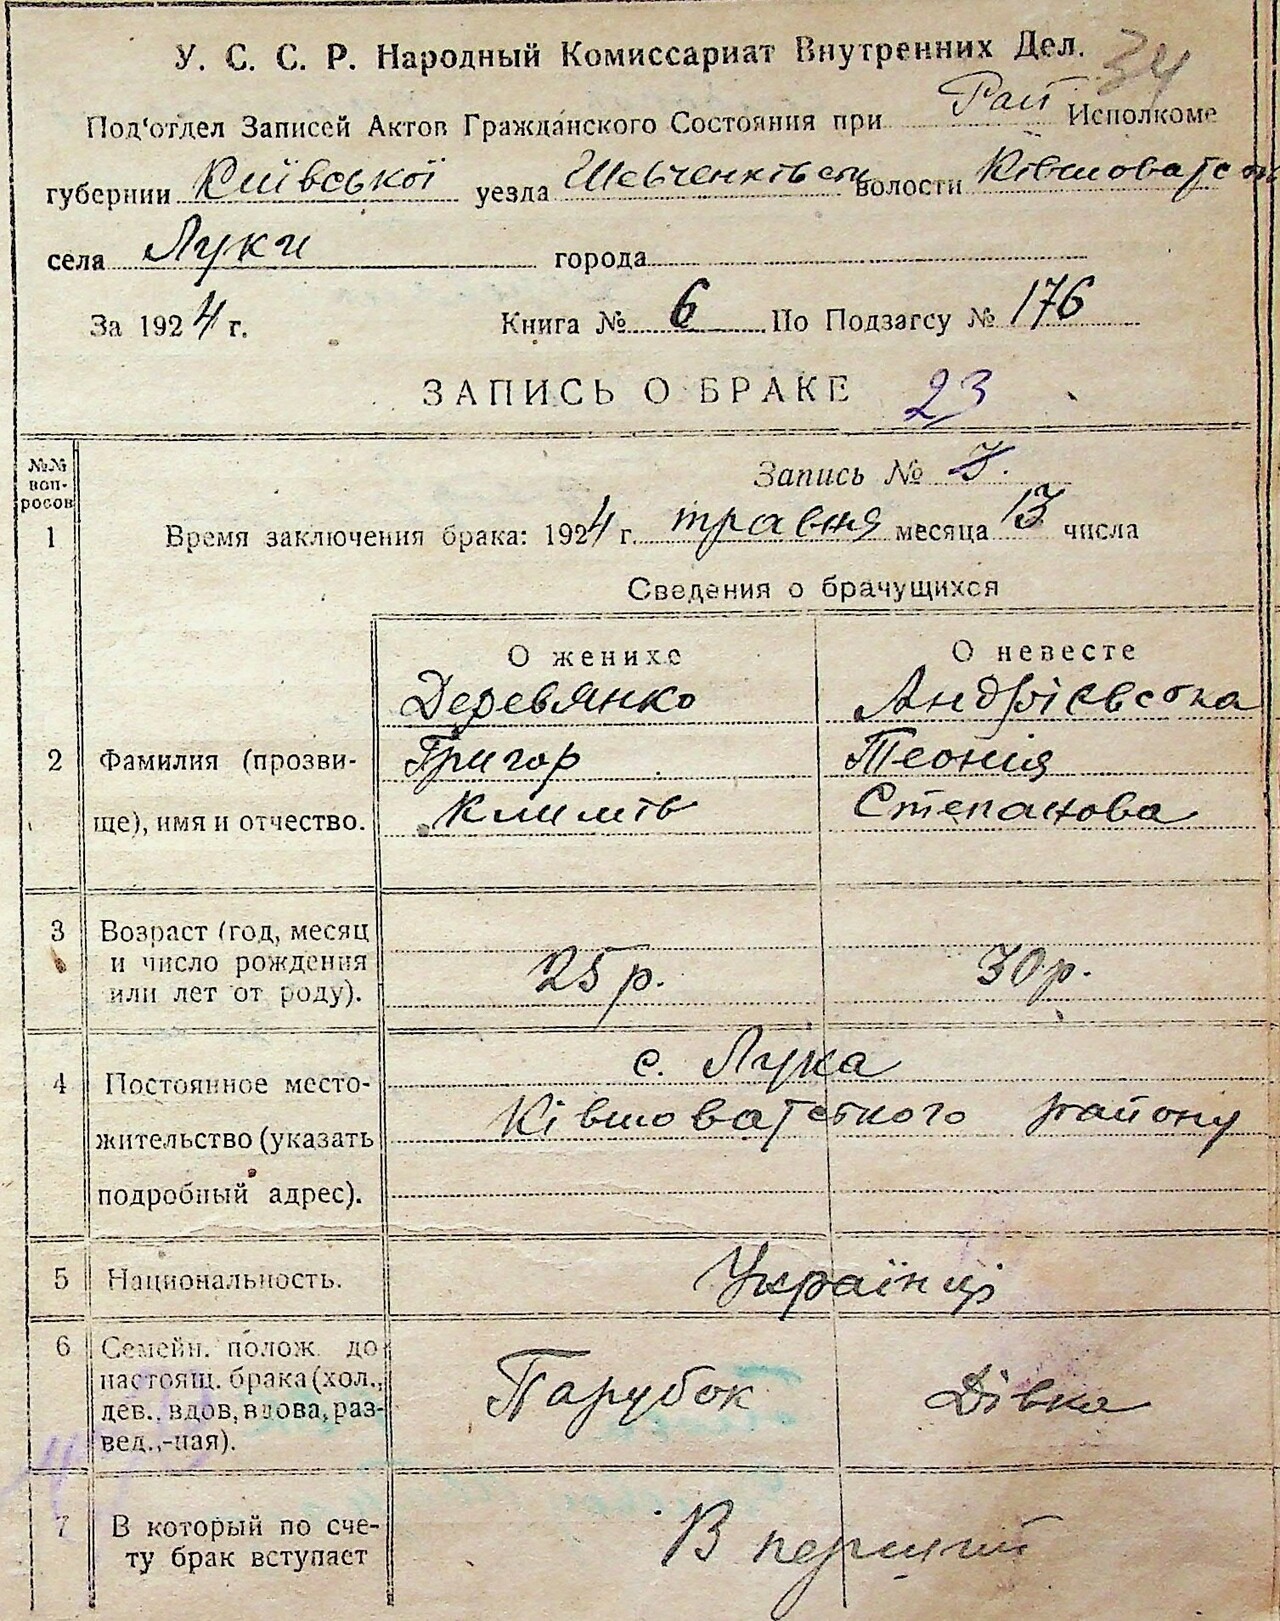 34
У. С. С. Р. Народный Комиссариат Внутренних Дел.
Под‘отдел Записей Актов Гражданского Состояния при Рай Исполкоме
губернии Київської уезда Шевченківськ волости Ківшоватськ
села Луки города
За 1924 г. Книга № 6 По Подзагсу № 176
ЗАПИСЬ О БРАКЕ 23
№№ вопросов
Запись № 7.
1 Время заключения брака: 1924 г. травня месяца 13 числа
Сведения о брачущихся
О женихе О невесте
Деревянко Андрієвська
2 Фамилия (прозви- Григор Теонія
ще), имя и отчество. Климів Степанова
3 Возраст (год, месяц
и число рождения 25 р. 30 р.
или лет от роду).
с. Лука
4 Постоянное место-
Ківшоватського району
жительство (указать
подробный адрес).
5 Национальность. Українці
6 Семейн. полож. до
настоящ. брака (хол.,
дев., вдов, вдова, раз- Парубок Дівка
вед.,-ная).
7 В который по сче- В перший
ту брак вступает